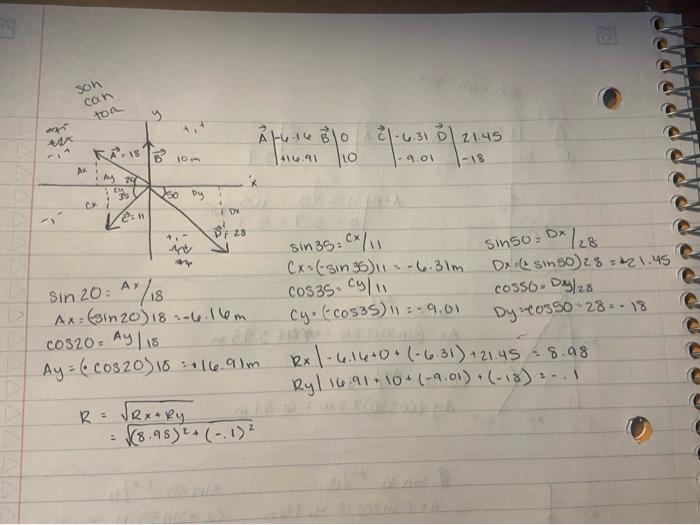 soh
can
toa
y
+,+
-,+
A = 18
B 10m
Ax
Ay 20
x
Cy
35
50 Dy
Cx
Dx
-,-
C = 11
+,-
D = 28
A | -6.16 B | 0 C | -6.31 D | 21.45
| +16.91 | 10 | -9.01 | -18
sin 20 = Ax/18
Ax = (-sin 20) 18 = -6.16m
cos20 = Ay/18
Ay = (+cos20)18 = +16.91m
sin35 = Cx/11
Cx = (-sin 35)11 = -6.31m
cos35 = Cy/11
Cy = (-cos35)11 = -9.01
sin50 = Dx/28
Dx = (+sin50)28 = +21.45
cos50 = Dy/28
Dy = -cos50 · 28 = -18
Rx | -6.16+0+(-6.31)+21.45 = 8.98
Ry | 16.91+10+(-9.01)+(-18) = -.1
R = √Rx+Ry
= √(8.98)²+(-.1)²